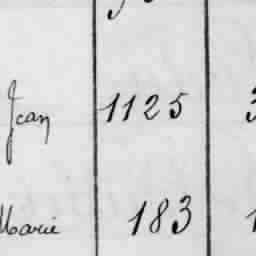 Jean 1125 3
Marie 183 1